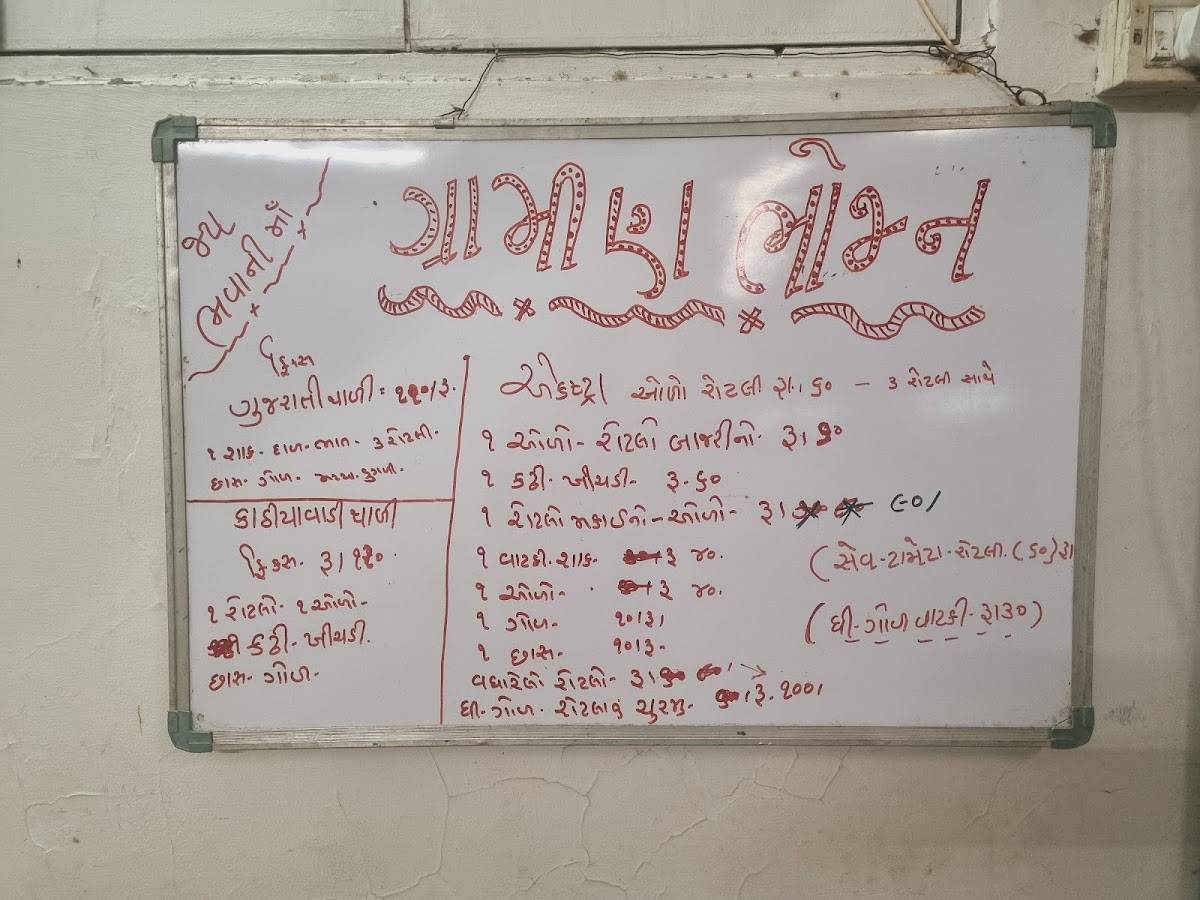 જય
ભવાની માઁ
ગ્રામીણ ભોજન
ફિક્સ
ગુજરાતી થાળી = ૧૨૦/રૂ.
૧ શાક - દાળ - ભાત - ૩ રોટલી.
છાસ - ગોળ -
કાઠીયાવાડી થાળી
ફિક્સ રૂ। ૧૨૦.
૧ રોટલો - ૧ ઓળો -
કઢી - ખીચડી.
છાસ - ગોળ -
એકસ્ટ્રા ઓળો રોટલી રૂા. ૬૦ – ૩ રોટલી સાથે
૧ ઓળો - રોટલો બાજરીનો - રૂ। ૬૦
૧ કઢી - ખીચડી - રૂ. ૬૦
૧ રોટલો મકાઈનો - ઓળો - રૂ। ૯૦/
૧ વાટકી - શાક - રૂ ૪૦.
૧ ઓળો - રૂ ૪૦.
૧ ગોળ - ૧૦।રૂ।
૧ છાસ - ૧૦।રૂ -
(સેવ - ટામેટા - રોટલી. (૬૦) રૂ।
(ઘી - ગોળ વાટકી - રૂા૩૦)
વઘારેલો રોટલો - રૂ।
ઘી - ગોળ - રોટલાનું ચુરમુ - રૂ. ૧૦૦/